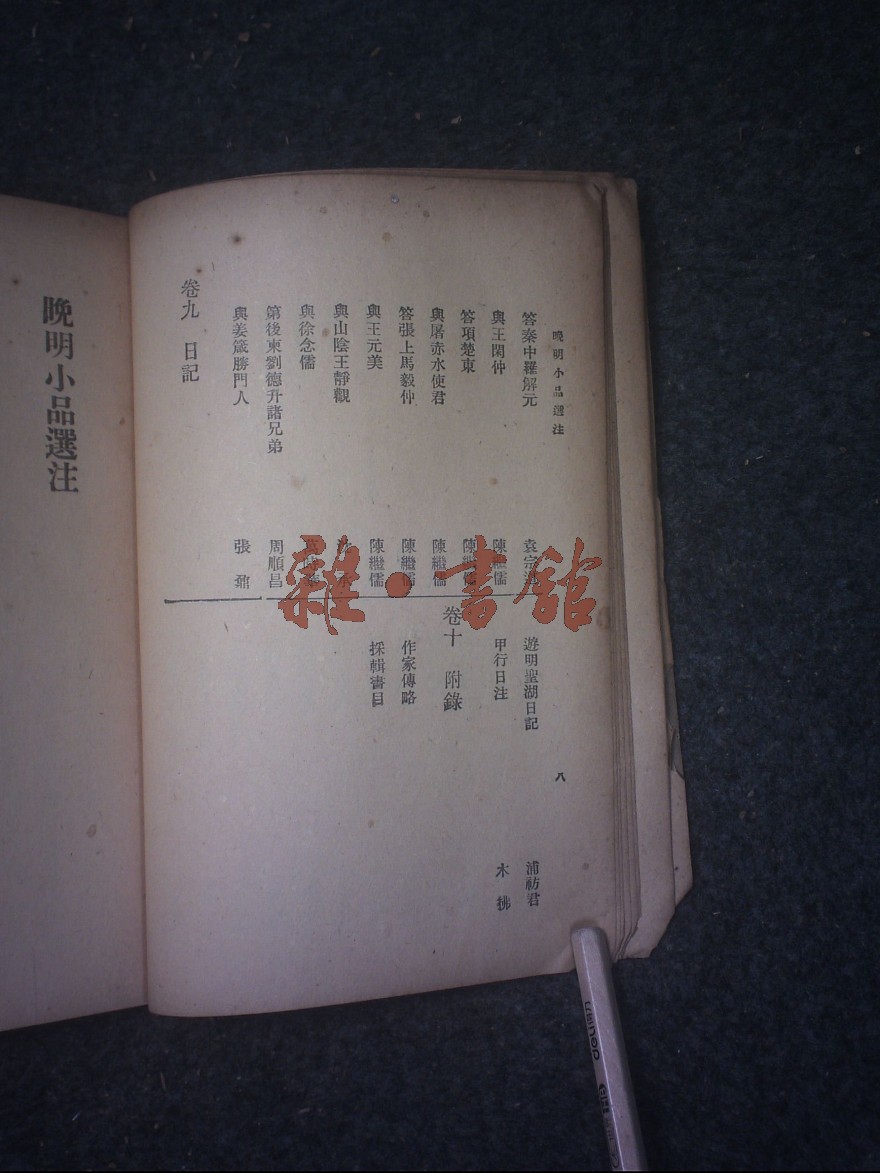 晚明小品選注
答秦中羅解元
袁宗道
與王閑仲
陳繼儒
答項楚東
陳繼儒
與屠赤水使君
陳繼儒
答張上馬毅仲
陳繼儒
與王元美
陳繼儒
與山陰王靜觀
與徐念儒
第後柬劉德升諸兄弟
周順昌
與姜箴勝門人
張鼐
卷九 日記
遊明聖湖日記
浦祊君
甲行日注
木拂
卷十 附錄
作家傳略
採輯書目
八
晚明小品選注
雜·書館